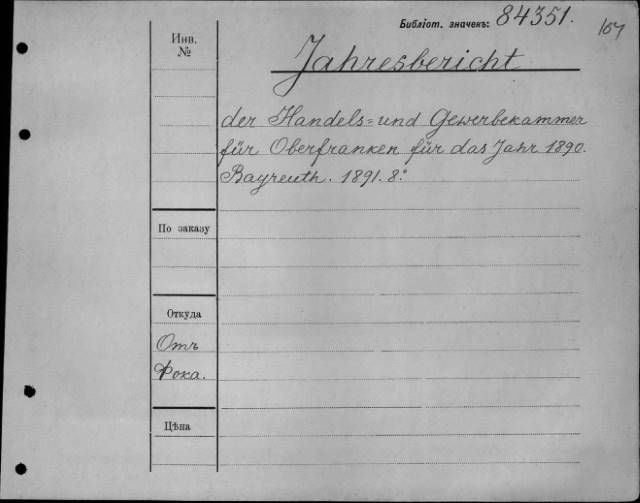 Библіот. значекъ: 84351.
Инв.
№
Jahresbericht
der Handels= und Gewerbekammer
für Oberfranken für das Jahr 1890.
Bayreuth. 1891. 8:º
По заказу
Откуда
Отъ
Фока.
Цѣна